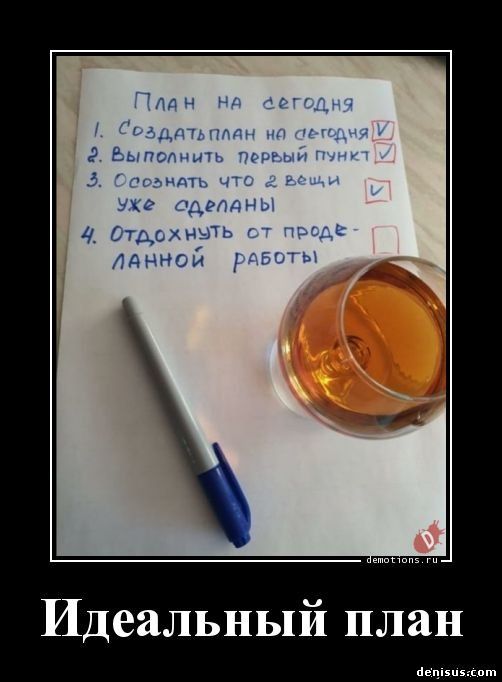 План на сегодня
1. Создать план на сегодня
2. Выполнить первый пункт
3. Осознать что 2 вещи
уже сделаны
4. Отдохнуть от проде-
ланной работы
demotions.ru
Идеальный план
denjsus.com